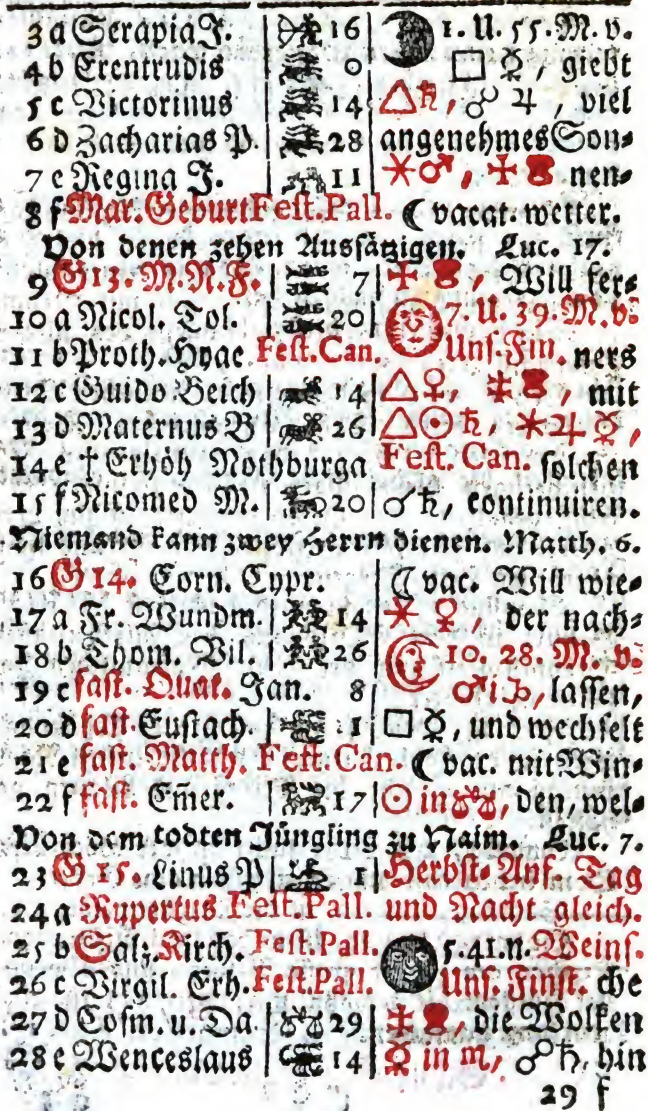 3 a Serapia J. 16 1. U. 55. M. v.
4 b Erentrudis 0 □ ☿, giebt
5 c Victorinus 14 △ ♄, ☍ ♃, viel
6 d Zacharias P. 28 angenehmes Son⸗
7 e Regina J. 11 ⚹ ♂, nen⸗
8 f Mar. Geburt Fest. Pall. ☾ vacat. wetter.
Von denen zehen Aussätzigen. Luc. 17.
9 G 13. M. N. F. 7 Will fer⸗
10 a Nicol. Tol. 20 7. U. 39. M. v.
11 b Proth. Hyac Fest. Can. Uns. Fin. ners
12 c Guido Beich 14 △ ♀, mit
13 d Maternus B 26 △ ☉ ♄, ⚹ ♃ ☿,
14 e † Erhöh Nothburga Fest. Can. solchen
15 f Nicomed M. 20 ☌ ♄, continuiren.
Niemand kann zwey Herrn dienen. Matth. 6.
16 G 14. Corn. Cypr. ☾ vac. Will wie⸗
17 a Fr. Wundm. 14 ⚹ ♀, der nach⸗
18 b Thom. Vil. 26 10. 28. M. v.
19 c fast. Quat. Jan. 8 ♂ i ♑, lassen,
20 d fast. Eustach. 1 □ ☿, und wechselt
21 e fast. Matth. Fest. Can. ☾ vac. mit Win⸗
22 f fast. Em̃er. 17 ☉ in ♎, den, wel⸗
Von dem todten Jüngling zu Naim. Luc. 7.
23 G 15. Linus P 1 Herbst⸗Anf. Tag
24 a Rupertus Fest. Pall. und Nacht gleich.
25 b Salz. Kirch. Fest. Pall. 5. 41. n. Weins.
26 c Virgil. Erh. Fest. Pall. Uns. Finst. che
27 d Cosm. u. Da. 29 die Wolken
28 e Wenceslaus 14 ☿ in ♏, ☍ ♄, hin
29 f